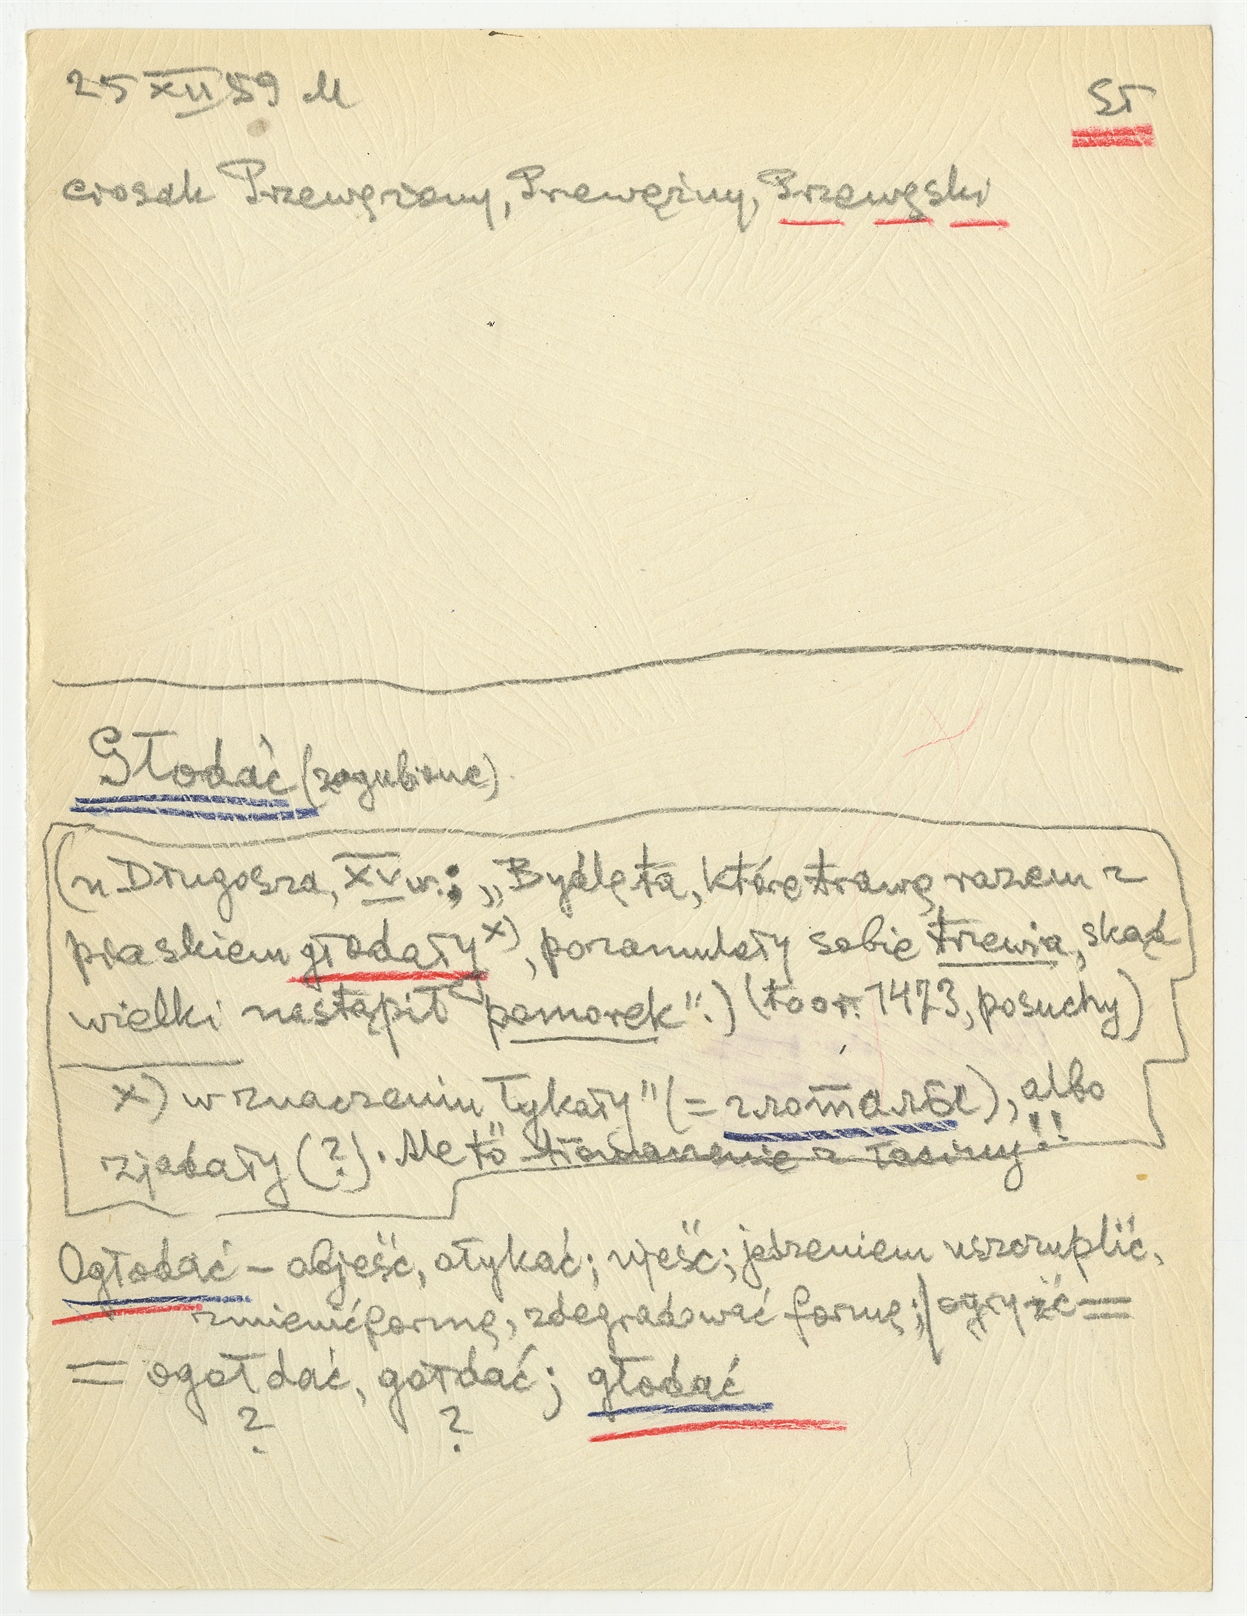 25 XII 59 M
Sł
ciosak Przewęziony, Przewęziny, Przewęski
Głodać (zagubione)
(u Długosza, XV w.; „Bydlęta, które trawę razem z
piaskiem głodały x), pozamulały sobie trzewia, skąd
wielki nastąpił pomorek”.) (to o r. 1473, posuchy)
x) w znaczeniu „łykały” (= ), albo
zjadały (?). Ale to tłomaczenie z łaciny!!
Ogłodać – objeść, ołykać; ujeść; jedzeniem uszczuplić,
zmienić formę, zdegradować formę; / ogryźć =
= ogołdać, gołdać; głodać
? ?